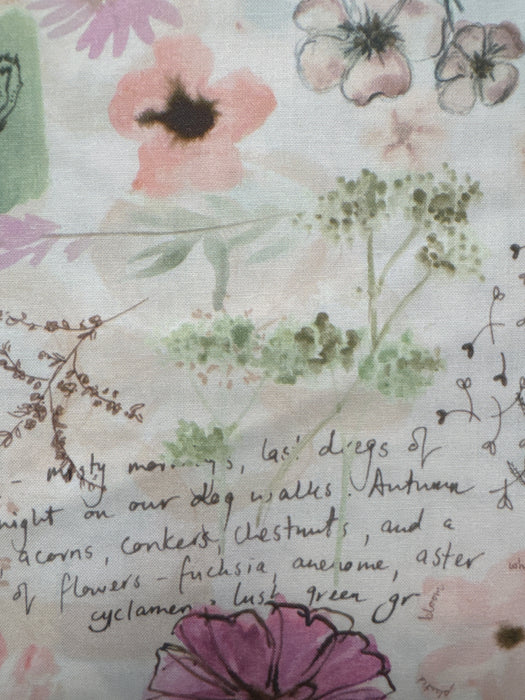 - misty mornings, last dregs of
night on our dog walks. Autumn
acorns, conkers, chestnuts, and a
of flowers - fuchsia, anemone, aster
cyclamen, lush green gr
bloom
wh